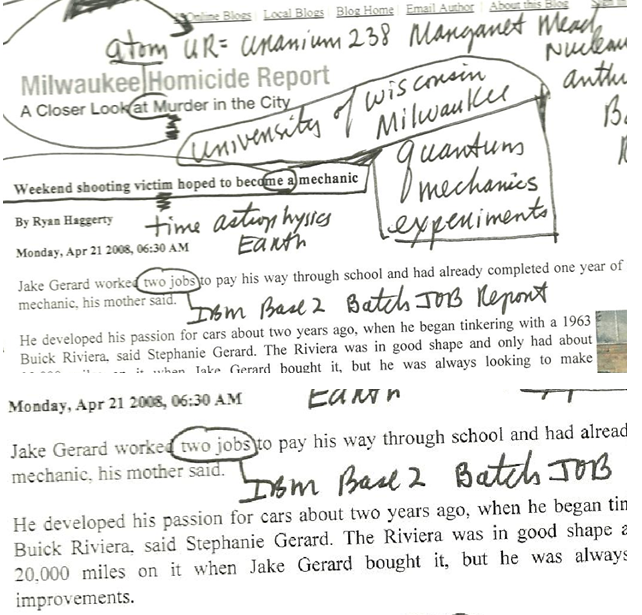 Online Blogs | Local Blogs | Blog Home | Email Author | About this Blog
atom UR= Uranium 238 Manganet Mead
Nuclear
Milwaukee Homicide Report
A Closer Look at Murder in the City
University of Wisconsin
Milwaukee
quantum
mechanics
experiments
Weekend shooting victim hoped to become a mechanic
By Ryan Haggerty
time astrophysics
Earth
Monday, Apr 21 2008, 06:30 AM
Jake Gerard worked two jobs to pay his way through school and had already completed one year of
mechanic, his mother said.
IBM Base 2 Batch JOB Report
He developed his passion for cars about two years ago, when he began tinkering with a 1963
Buick Riviera, said Stephanie Gerard. The Riviera was in good shape and only had about
20,000 miles on it when Jake Gerard bought it, but he was always looking to make
Earth
Monday, Apr 21 2008, 06:30 AM
Jake Gerard worked two jobs to pay his way through school and had alread
mechanic, his mother said.
IBM Base 2 Batch JOB
He developed his passion for cars about two years ago, when he began tin
Buick Riviera, said Stephanie Gerard. The Riviera was in good shape a
20,000 miles on it when Jake Gerard bought it, but he was always
improvements.